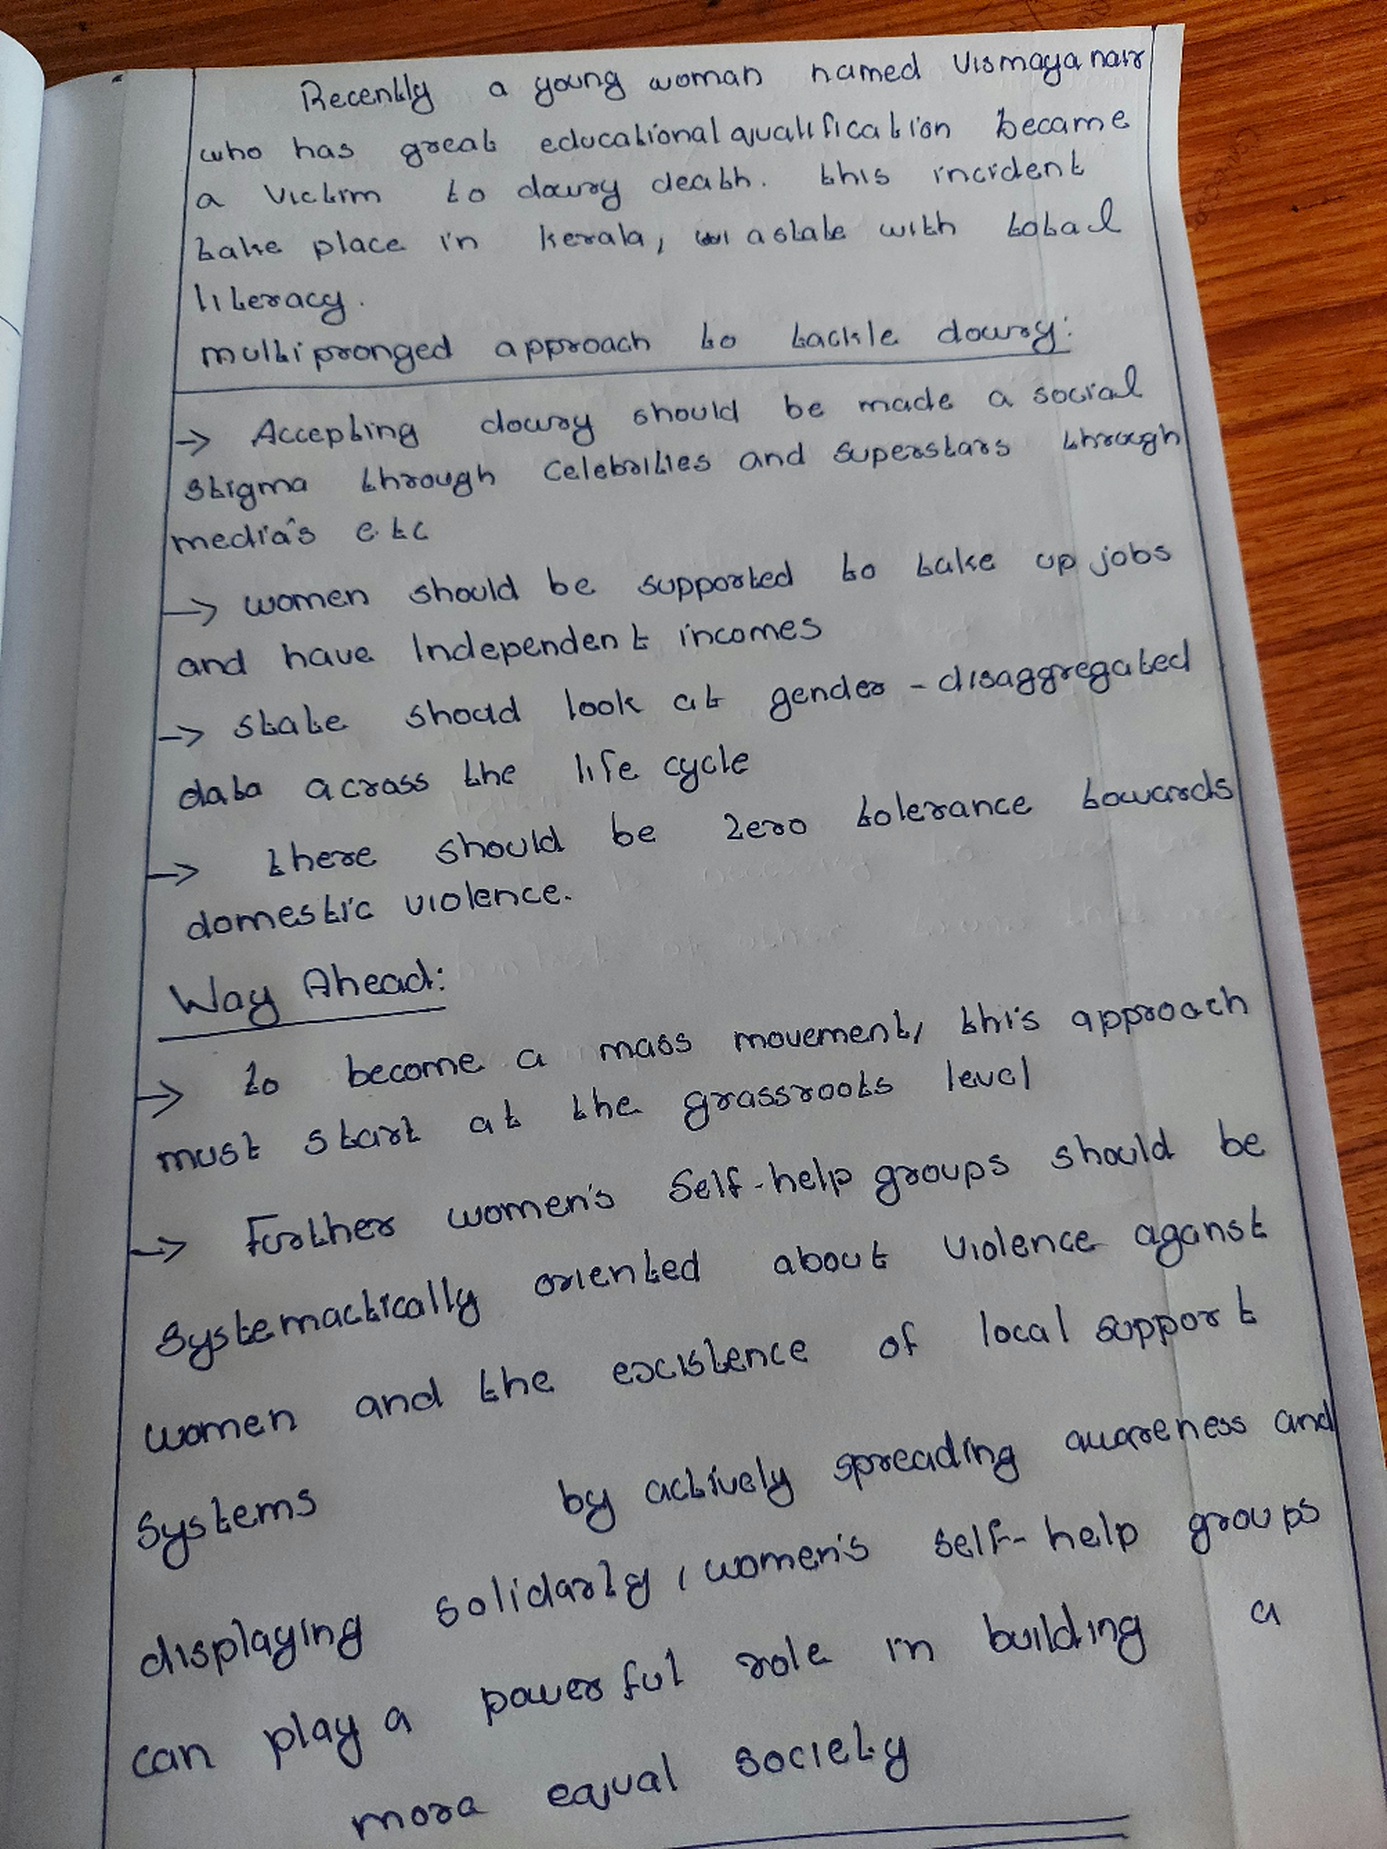 Recently a young woman named Vismaya nair
who has great educational qualification became
a victim to dowry death. this incident
take place in kerala, a state with total
literacy.
multipronged approach to tackle dowry:
→ Accepting dowry should be made a social
stigma through celebrities and superstars through
media's etc
→ women should be supported to take up jobs
and have Independent incomes
→ state shoud look at gender - disaggregated
data across the life cycle
→ there should be zero tolerance towards
domestic violence.
Way Ahead:
→ to become a mass movement, this approach
must start at the grassroots level
→ Further women's Self-help groups should be
systemactically oriented about violence aganst
women and the existence of local support
systems by actively spreading awareness and
displaying solidarty, women's self-help groups
can play a powerful role in building a
more equal society